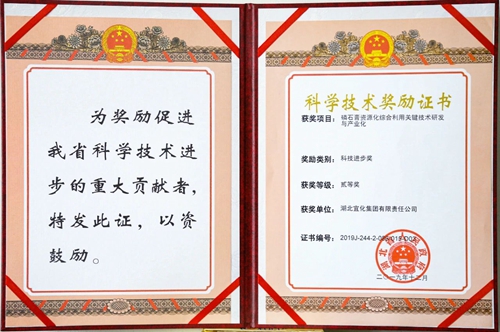 为奖励促进
我省科学技术进
步的重大贡献者，
特发此证，以资
鼓励。
科学技术奖励证书
获奖项目：磷石膏资源化综合利用关键技术研发
与产业化
奖励类别：科技进步奖
获奖等级：贰等奖
获奖单位：湖北宜化集团有限责任公司
证书编号：2019J-244-2-
二〇一九年十二月